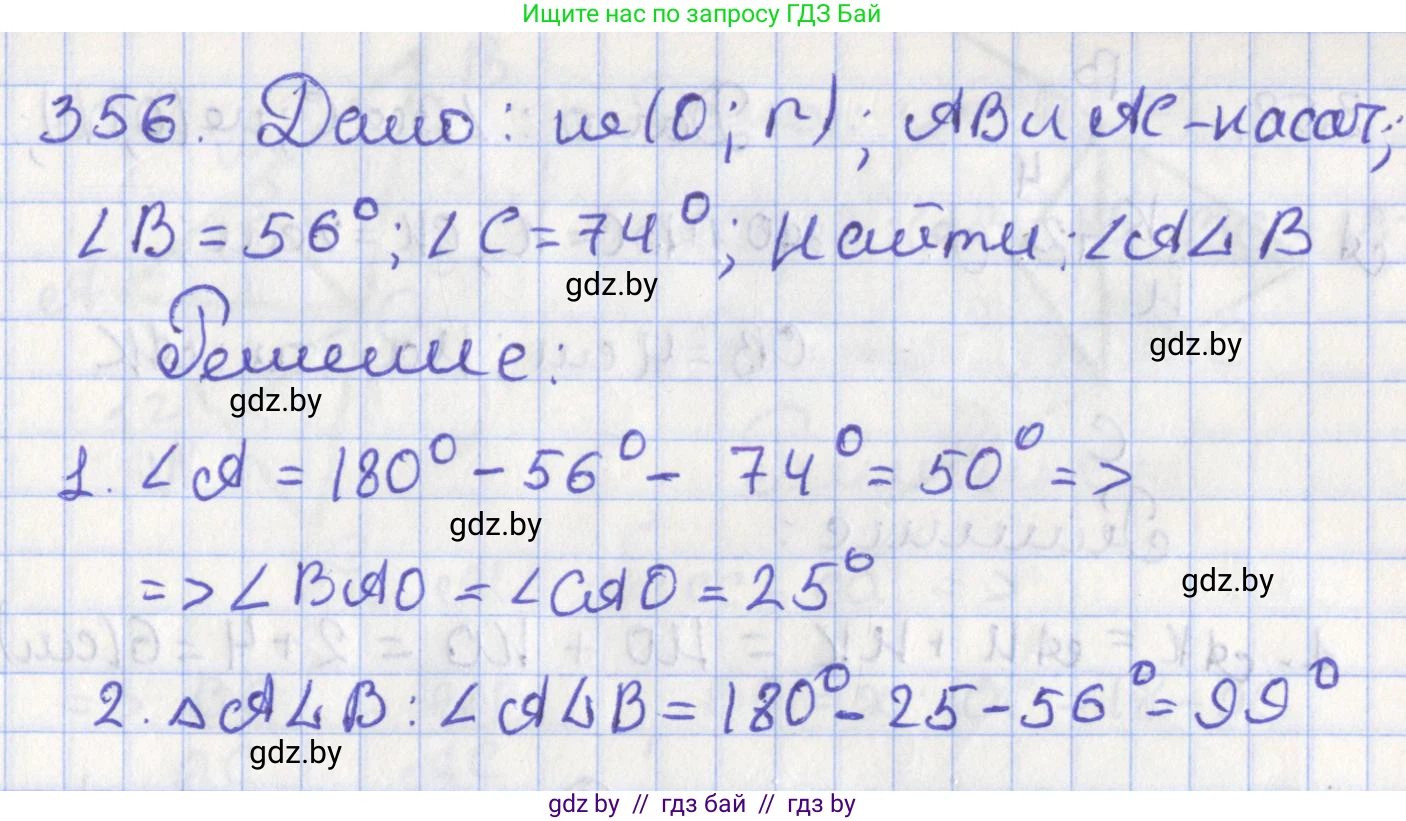 Ищите нас по запросу ГДЗ Бай
356. Дано: ω(O; r); AB и AC - касат.;
∠B = 56°; ∠C = 74°; Найти: ∠ALB
gdz.by
Решение:
gdz.by
gdz.by
1. ∠A = 180° - 56° - 74° = 50° =>
gdz.by
=> ∠BAO = ∠CAO = 25°
gdz.by
2. △ALB: ∠ALB = 180° - 25 - 56° = 99°
gdz.by
gdz.by // гдз бай // гдз by